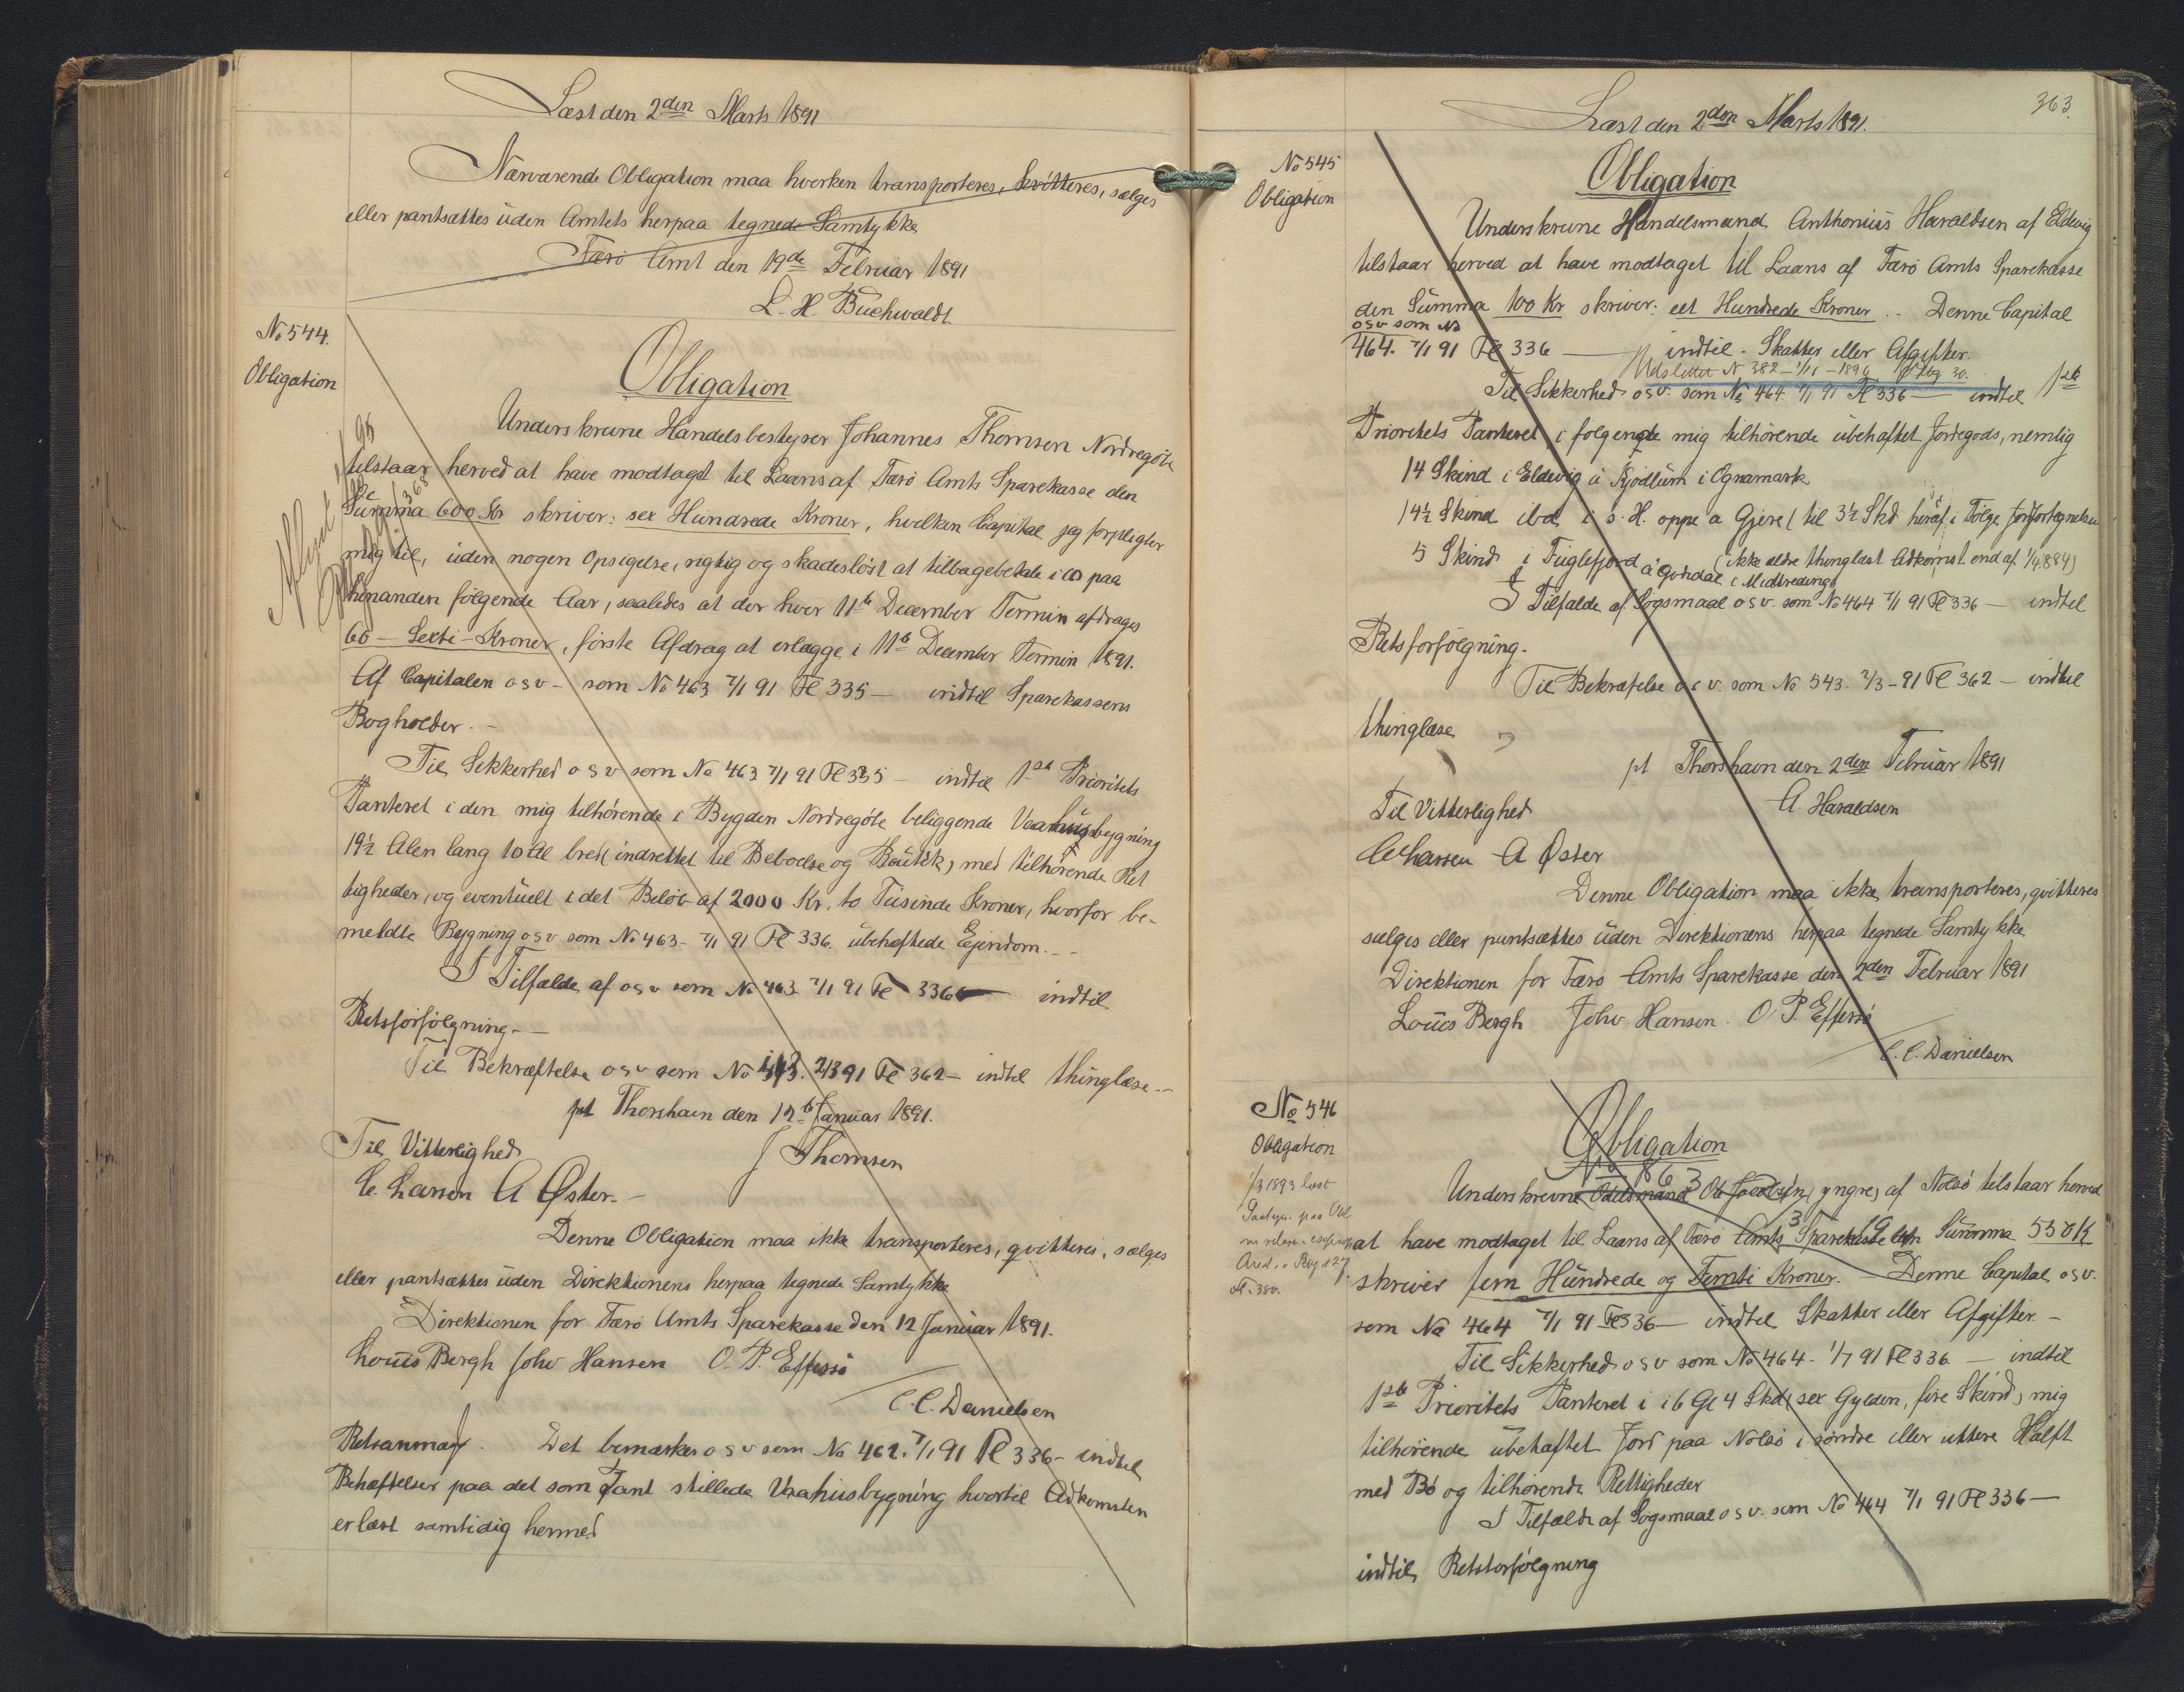 Læst den 2den Marts 1891
Nærværende Obligation maa hverken transporteres, kvitteres, sælges
eller pantsættes uden Amtets herpaa tegnede Samtykke
Færø Amt den 19de Februar 1891
L. H Buchwaldt
No 544.
Obligation
Obligation
Underskrevne Handelsbestyrer Johannes Thomsen Nordregöte
tilstaar herved at have modtaget til Laans af Færø Amts Sparekasse den
Summa 600 Kr skriver: sex Hundrede Kroner, hvilken Capital jeg forpligter
mig til, uden nogen Opsigelse, rigtig og skadesløst at tilbagebetale i 10 paa
hinanden følgende Aar, saaledes at der hver 11te December Termin afdrages
60 – Sexti – Kroner, første Afdrag at erlægge i 11te December Termin 1891.
Af Capitalen osv – som No 463 7/1 91 Fl 335 – indtil Sparekassens
Bogholder. –
Til Sikkerhed osv som No 463 7/1 91 Fl 335 – indtil 1ste Prioritets
Panteret i den mig tilhørende i Bygden Nordregöte beliggende Vaahusbygning
19½ Alen lang 10 Al bred (indrettet til Beboelse og Boutik) med tilhørende Ret
tigheder, og eventuelt i det Beløb af 2000 Kr. to Tusinde Kroner, hvorfor be-
meldte Bygning osv som No 463 – 7/1 91 Fl 336. ubehæftede Ejendom. – –
I Tilfælde af osv som No 463 7/1 91 Fl 336 – indtil
Retsforfølgning. –
Til Bekræftelse osv som No 543. 2/3 91 Fl 362 – indtil thinglæse. –
pt Thorshavn den 12te Januar 1891.
Til Vitterlighed J Thomsen
C. Larsen A Øster. –
Denne Obligation maa ikke transporteres, qvitteres, sælges
eller pantsættes uden Direktionens herpaa tegnede Samtykke
Direktionen for Færø Amts Sparekasse den 12 Januar 1891.
Louis Bergh Johs Hansen O. P. Effersö
C. C. Danielsen
Retsanmærk. Det bemærkes osv som No 462. 7/1 91 Fl 336 – indtil
Behæftelser paa det som Pant stillede Vaahusbygning hvortil Adkomsten
er læst samtidig hermed
363.
Læst den 2den Marts 1891.
No 545
Obligation
Obligation
Underskrevne Handelsmand Anthonius Haraldsen af Eldevig
tilstaar herved at have modtaget til Laans af Færø Amts Sparekasse
den Summa 100 Kr skriver: eet Hundrede Kroner. – Denne Capital
osv som No
464. 7/1 91 Fl 336 — indtil – Skatter eller Afgifter.
Udslettet N 382 – 1/11 – 1896 Pbg 30.
Til Sikkerhed osv. som No 464 7/1 91 Fl 336 — indtil 1ste
Prioritets Panteret i følgende mig tilhørende ubehæftet Jordegods, nemlig
14 Skind i Eldevig á Kjødlum i Ognamark
14½ Skind ibd. i s. H. oppe a Gjere (til 3½ Skd. heraf i Følge Jordfortegnelsen
(ikke ældre thinglæst Adkomst end af 1/4 884)
5 Skind i Fuglefjord á Gondal i Midtreding
I Tilfælde af Søgsmaal osv. som No 464 7/1 91 Fl 336 — indtil
Retsforfølgning. –
Til Bekræftelse osv. som No 543. 2/3 – 91 Fl 362 – indtil
thinglæse
pt Thorshavn den 2den Februar 1891
Til Vitterlighed A Haraldsen
C Larsen A Øster
Denne Obligation maa ikke transporteres, qvitteres
sælges eller pantsættes uden Direktionens herpaa tegnede Samtykke
Direktionen for Færø Amts Sparekasse den 2den Februar 1891
Louis Bergh Johs. Hansen. O. P. Effersö
C. C. Danielsen
No 546
Obligation
1/3 1893 læst
Obligation
No 863
Underskrevne Odelsmand Ole Jacobsen (yngre) af Nolsö tilstaar herved
at have modtaget til Laans af Færø Amts Sparekasse den Summa 550 K
skriver fem Hundrede og Femti Kroner. – Denne Capital osv.
som No 464 7/1 91 Fl 336 — indtil Skatter eller Afgifter –
Til Sikkerhed osv som No 464 – 7/1 91 Fl 336 — indtil
1ste Prioritets Panteret i 6 Gl 4 Skd (sex Gylden, fire Skind) mig
tilhørende ubehæftet Jord paa Nolsö i søndre eller uttere Halft
med Bö og tilhørende Rettigheder
I Tilfælde af Søgsmaal osv. som No 464 7/1 91 Fl 336 —
indtil Retsforfølgning